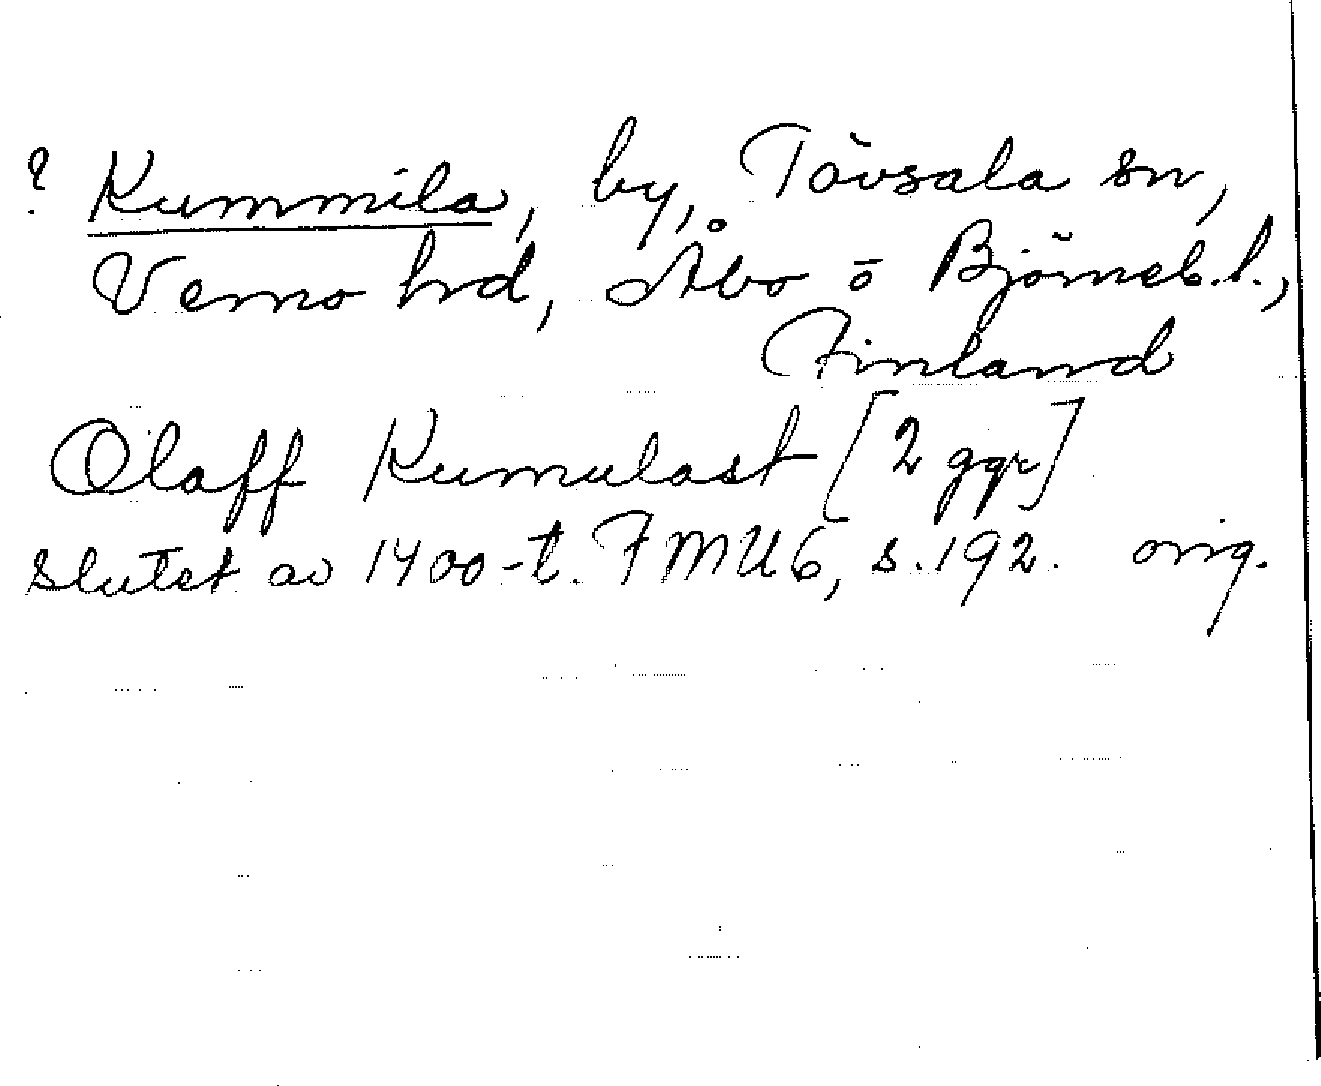 ? Kummila, by, Tövsala sn,
Vemo hrd, Åbo o Björneb. l.,
Finland
Olaff Kumulast [2 ggr]
slutet av 1400-t. FMU 6, s. 192. orig.